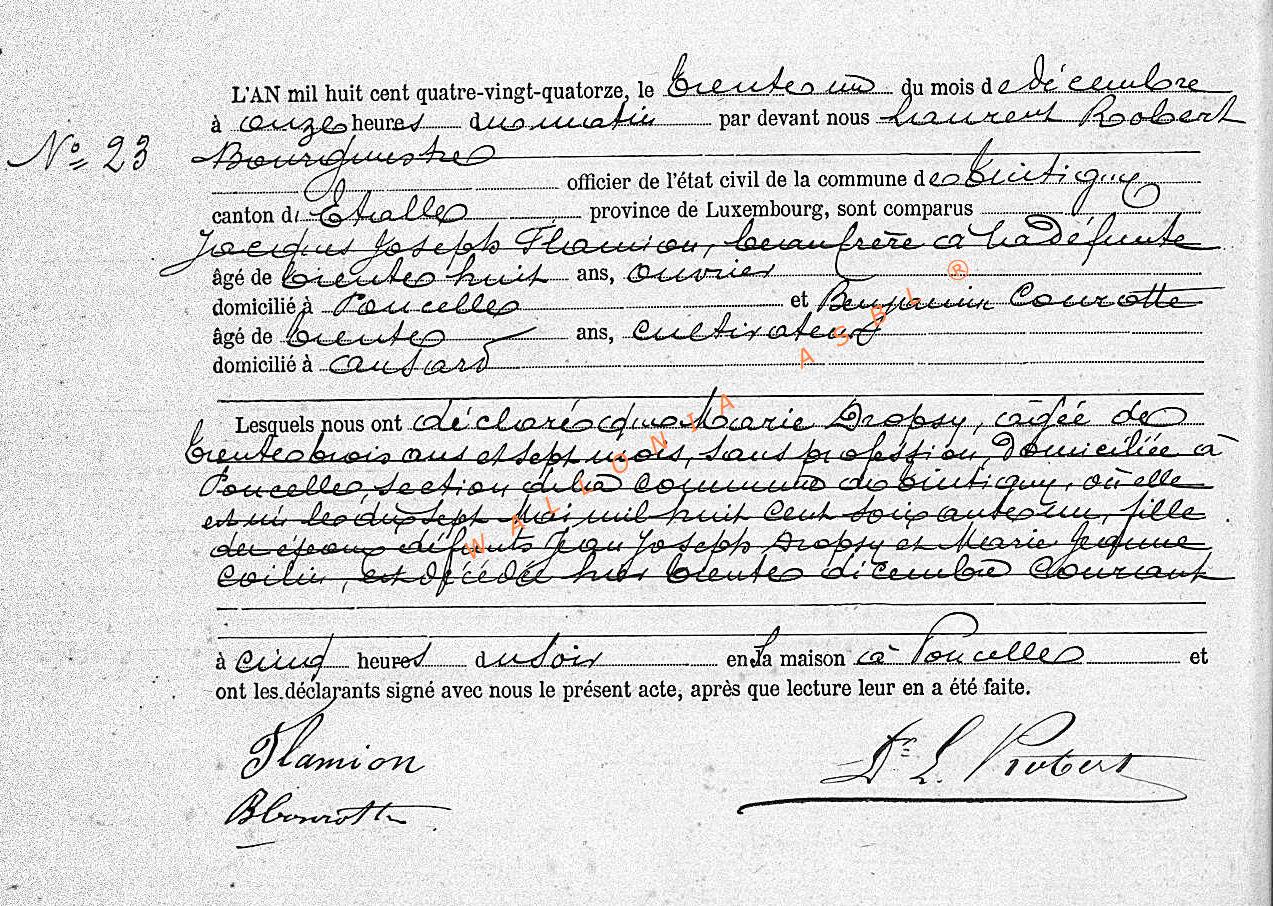 L'AN mil huit cent quatre-vingt-quatorze, le trente un du mois de décembre
à onze heures du matin par devant nous Laurent Robert
Nº 23
Bourgmestre
officier de l'état civil de la commune de Tintigny
canton d'Etalle province de Luxembourg, sont comparus
Jacques Joseph Flamion, beaufrère à la défunte
âgé de trente huit ans, ouvrier
domicilié à Poncelle et Benjamin Courotte
âgé de trente ans, cultivateur
domicilié à ansart
Lesquels nous ont déclaré que Marie Dropsy, agée de
trente trois ans et sept mois, sans profession, domiciliée à
Poncelle, section de la commune de Tintigny, où elle
est né le dix sept Mai mil huit cent soixante un, fille
des époux défunts Jean Joseph Dropsy et Marie Jeanne
est décédée hier trente décembre courant
à cinq heures du soir en sa maison à Poncelle et
ont les déclarants signé avec nous le présent acte, après que lecture leur en a été faite.
Flamion
Dr L. Robert
B Courotte
WALLONIA ASBL ®